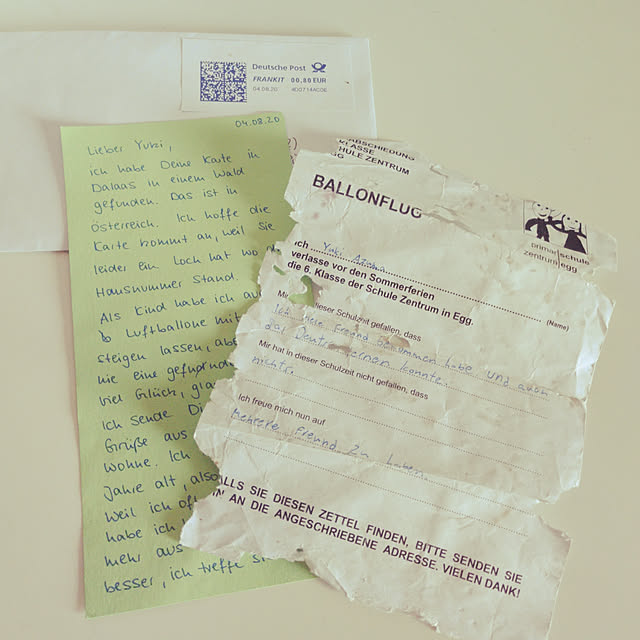 Deutsche Post
FRANKIT 00,80 EUR
04.08.20
04.08.20
Lieber Yuki,
ich habe Deine Karte in
Dalaas in einem Wald
gefunden. Das ist in
Österreich. Ich hoffe die
Karte kommt an, weil sie
leider ein Loch hat wo
Hausnummer stand.
Als Kind habe ich au
Luftballone mit
steigen lassen, abe
nie eine gefund
viel Glück,
Ich sende Di
Grüße aus
wohne. Ich
Jahre alt, also
weil ich of
habe ich
mehr aus
besser, ich treffe
ABSCHIEDUNG
KLASSE
HULE ZENTRUM
BALLONFLUG
primarschule
zentrum egg
ich Yuki
(Name)
verlasse vor den Sommerferien
die 6. Klasse der Schule Zentrum in Egg.
Mir dieser Schulzeit gefallen, dass
ich viele Freund bekommen habe und auch
das Deutsch lernen konnte.
Mir hat in dieser Schulzeit nicht gefallen, dass
nichts.
Ich freue mich nun auf
Mehrere Freund zu haben
ALLS SIE DIESEN ZETTEL FINDEN, BITTE SENDEN SIE
IN AN DIE ANGESCHRIEBENE ADRESSE. VIELEN DANK!